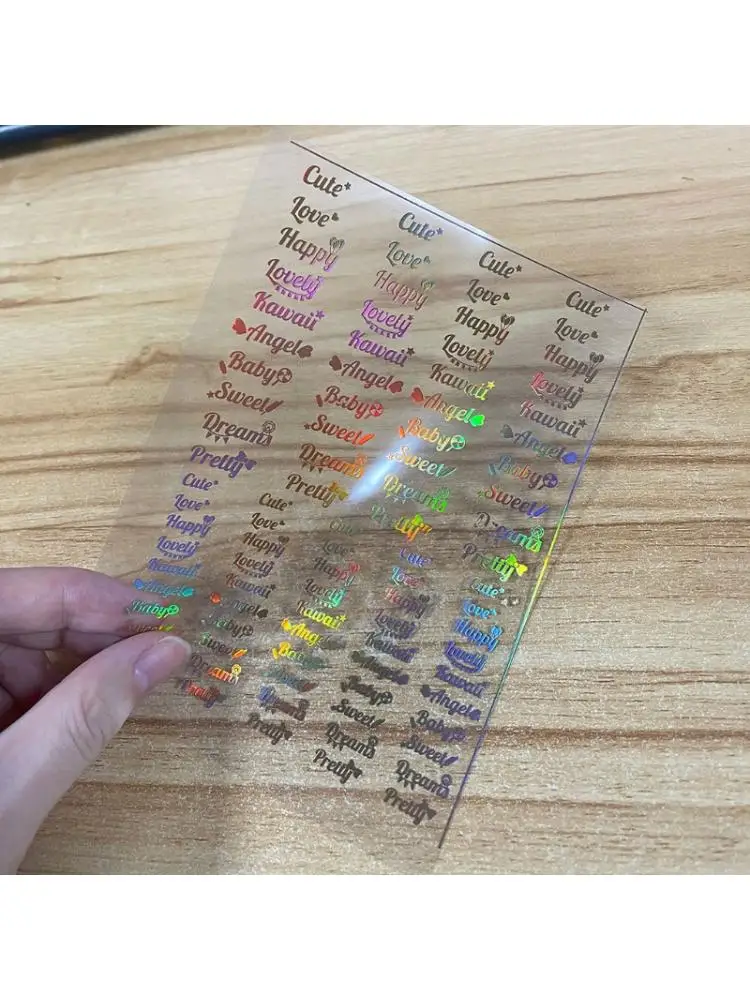 Cute
Love
Happy
Lovely
Kawaii
Angel
Baby
Sweet
Dreams
Pretty
Cute
Love
Happy
Lovely
Kawaii
Angel
Baby
Sweet
Dreams
Pretty
Cute
Love
Happy
Lovely
Kawaii
Angel
Baby
Sweet
Dreams
Pretty
Cute
Love
Happy
Lovely
Kawaii
Angel
Baby
Sweet
Dreams
Pretty
Cute
Love
Happy
Lovely
Kawaii
Angel
Baby
Cute
Love
Happy
Lovely
Kawaii
Angel
Baby
Sweet
Dreams
Pretty
Cute
Love
Happy
Lovely
Kawaii
Angel
Baby
Sweet
Dreams
Pretty
Cute
Love
Happy
Lovely
Kawaii
Angel
Baby
Sweet
Dreams
Pretty
Cute
Love
Happy
Lovely
Kawaii
Angel
Baby
Sweet
Dreams
Pretty